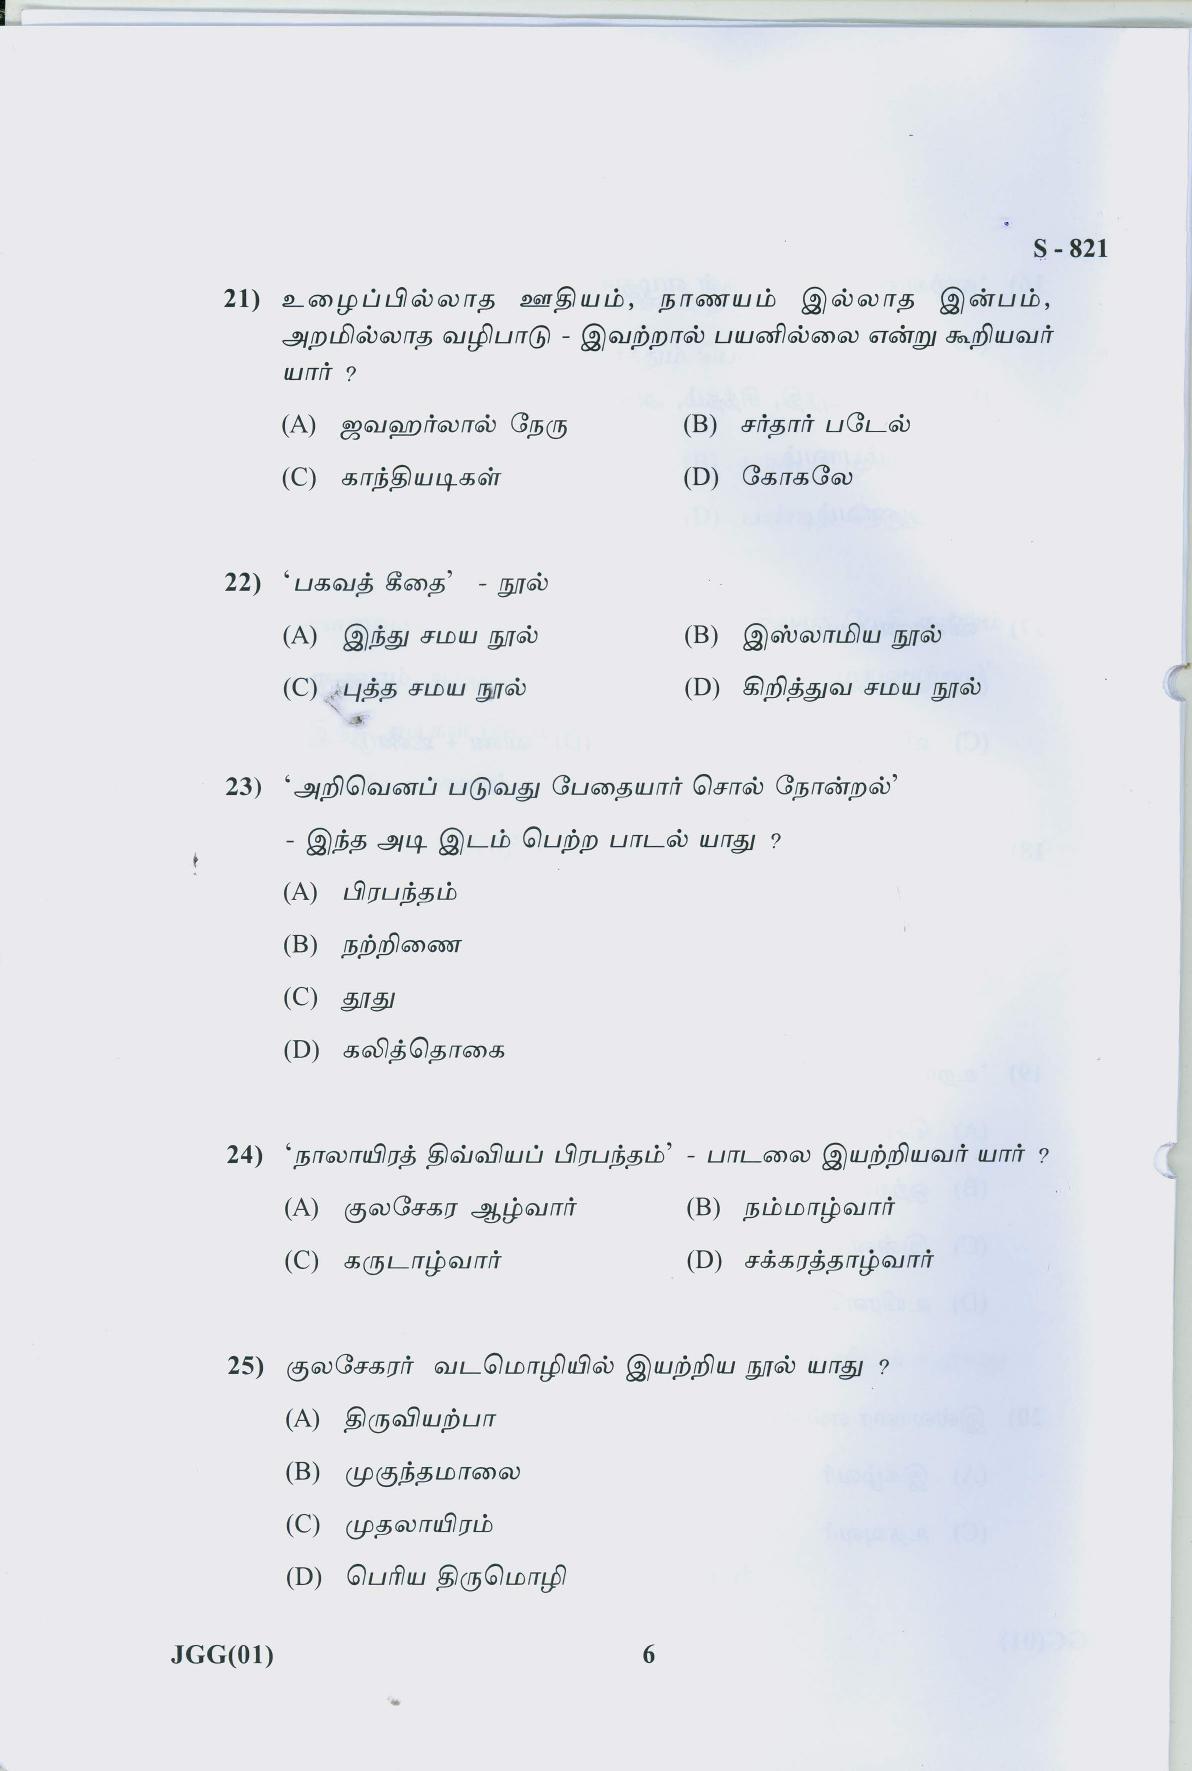 S - 821
21) உழைப்பில்லாத ஊதியம், நாணயம் இல்லாத இன்பம்,
அறமில்லாத வழிபாடு - இவற்றால் பயனில்லை என்று கூறியவர்
யார் ?
(A) ஜவஹர்லால் நேரு (B) சர்தார் படேல்
(C) காந்தியடிகள் (D) கோகலே
22) ‘பகவத் கீதை’ - நூல்
(A) இந்து சமய நூல் (B) இஸ்லாமிய நூல்
(C) புத்த சமய நூல் (D) கிறித்துவ சமய நூல்
23) ‘அறிவெனப் படுவது பேதையார் சொல் நோன்றல்’
- இந்த அடி இடம் பெற்ற பாடல் யாது ?
(A) பிரபந்தம்
(B) நற்றிணை
(C) தூது
(D) கலித்தொகை
24) ‘நாலாயிரத் திவ்வியப் பிரபந்தம்’ - பாடலை இயற்றியவர் யார் ?
(A) குலசேகர ஆழ்வார் (B) நம்மாழ்வார்
(C) கருடாழ்வார் (D) சக்கரத்தாழ்வார்
25) குலசேகரர் வடமொழியில் இயற்றிய நூல் யாது ?
(A) திருவியற்பா
(B) முகுந்தமாலை
(C) முதலாயிரம்
(D) பெரிய திருமொழி
JGG(01) 6